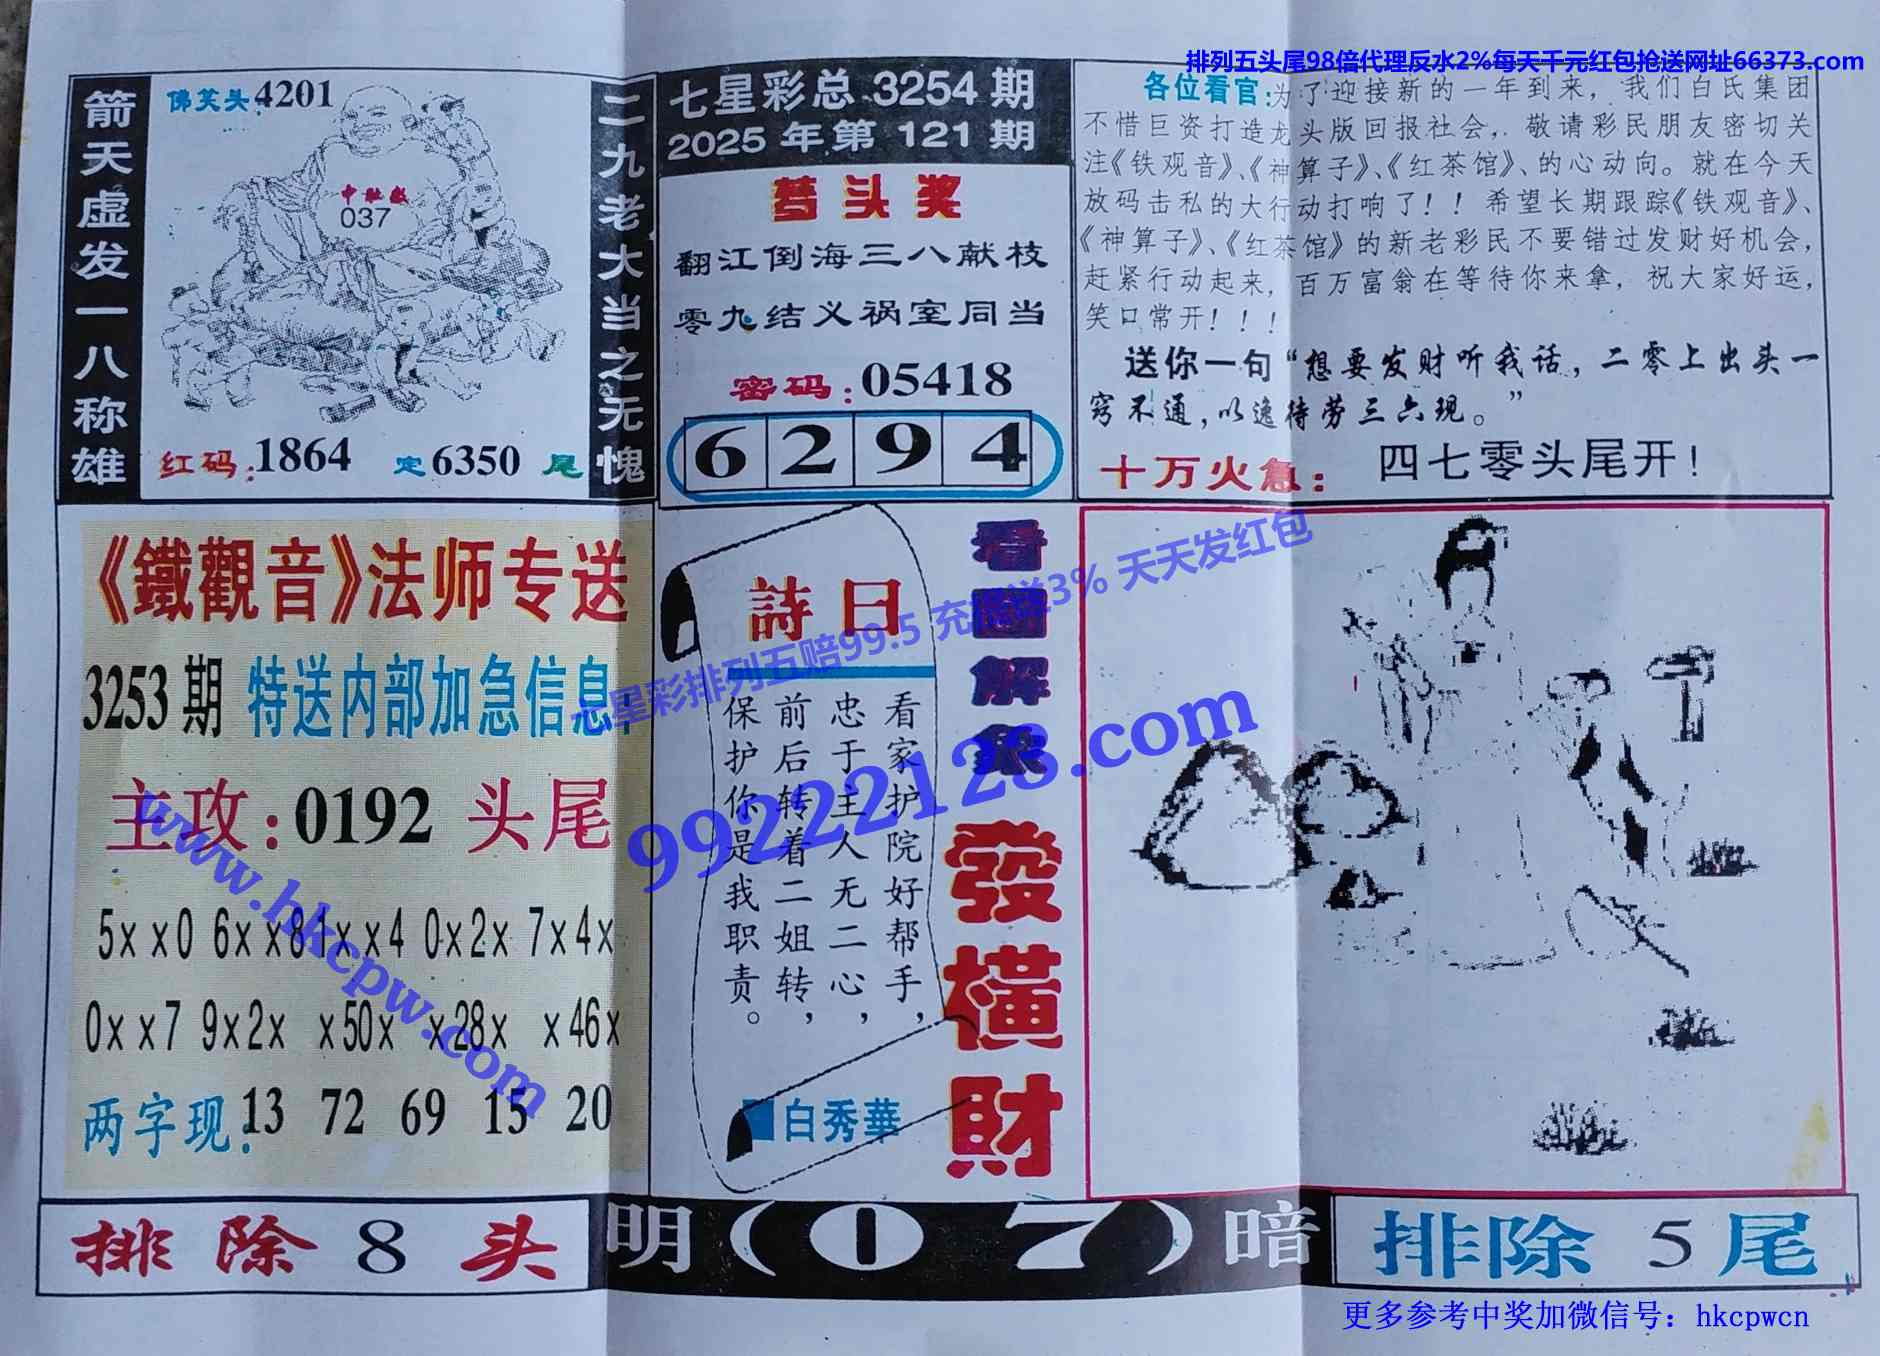 排列五头尾98倍代理反水2%每天千元红包抢送网址66373.com
箭天虚发一八称雄
佛笑头:4201
中肚数
037
红码:1864 定6350尾
二九老大当之无愧
七星彩总3254期
2025年第121期
梦头奖
翻江倒海三八献枝
零九结义祸室同当
密码:05418
6294
各位看官:为了迎接新的一年到来,我们白氏集团
不惜巨资打造龙头版回报社会,.敬请彩民朋友密切关
注《铁观音》、《神算子》、《红茶馆》、的心动向。就在今天
放码击私的大行动打响了!!希望长期跟踪《铁观音》、
《神算子》、《红茶馆》的新老彩民不要错过发财好机会,
赶紧行动起来,百万富翁在等待你来拿,祝大家好运,
笑口常开!!!
送你一句“想要发财听我话,二零上出头一
窍不通,以逸待劳三六现。”
十万火急:四七零头尾开!
《鐵觀音》法师专送
3253期 特送内部加急信息
主攻:0192头尾
5××0 6××8 1××4 0×2× 7×4×
0××7 9×2× ×50× ×28× ×46×
两字现:13 72 69 15 20
詩曰
看家护院好帮手,
忠于主人无二心,
前后转着二姐转,
保护你是我职责。
白秀華
看圖解象
發橫財
七星彩排列五赔99.5 充值送3% 天天发红包
99222123.com
www.hkcpw.com
排除8头
明(07)暗
排除5尾
更多参考中奖加微信号:hkcpwcn